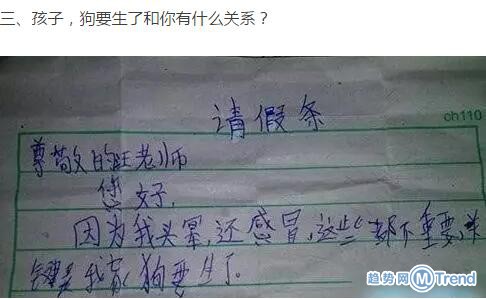 三、孩子，狗要生了和你有什么关系？
请假条
ch110
尊敬的旺老师
您好，
因为我头晕，还感冒，这些都不重要，关
键是我家狗要生了。
趋势网 MTrend